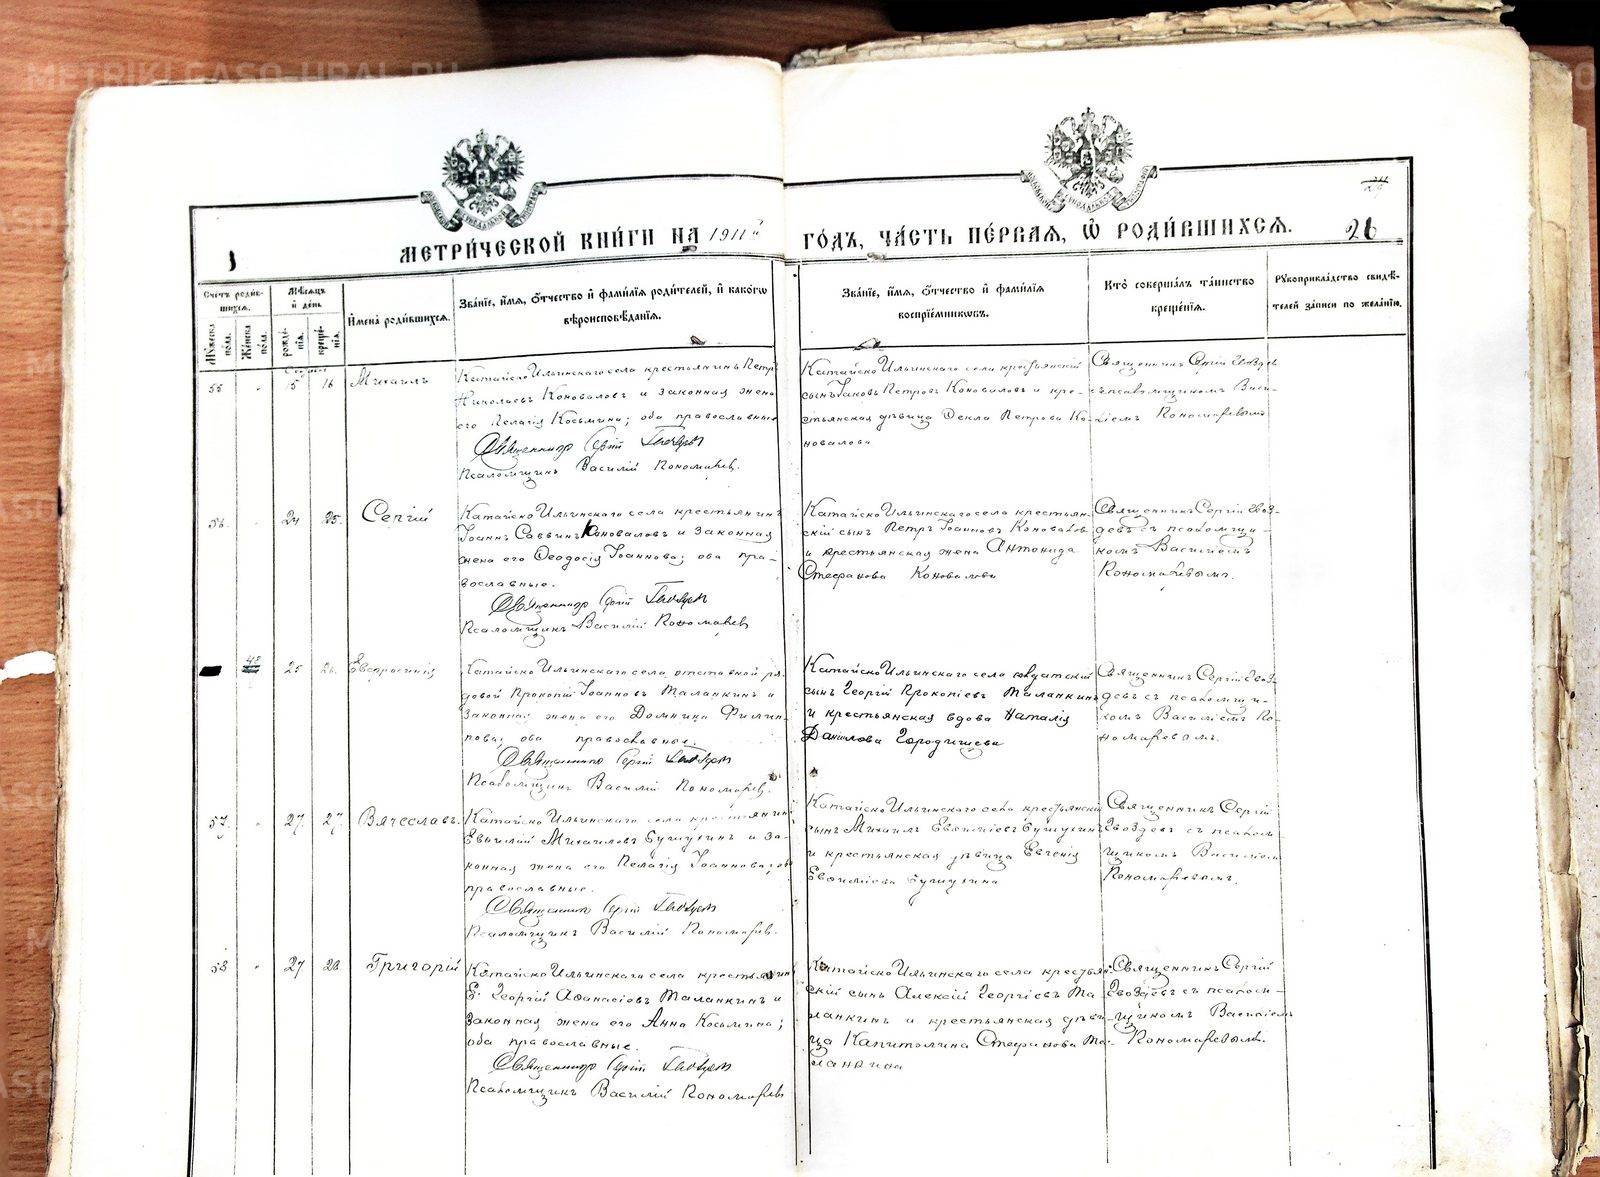 METRIKI.GASO-URAL.RU
МЕТРИ́ЧЕСКОЙ КНИ́ГИ НА 1911й ГО́ДЪ, ЧА́СТЬ ПЕ́РВАЯ, Ѡ РОДИ́ВШИХСЯ. 26
Счетъ роди́вшихся.
Мѣсяцъ и́ день
Мꙋ́жеска по́ла.
Же́нска по́ла.
рожде́нїя.
креще́нїя.
И҆мена̀ роди́вшихся.
Зва́нїе, и҆́мя, ѻ҆́тчество и҆ фами́лїя роди́телей, и҆ како́гѡ вѣроисповѣ́данїя.
Зва́нїе, и҆́мя, ѻ҆́тчество и҆ фами́лїя воспрїе́мникѡвъ.
Кто̀ соверша́лъ та́инство креще́нїя.
Рꙋкоприкла́дство свидѣ́телей за́писи по жела́нїю.
55 15 16 Михаилъ
Катайско Ильинскаго села крестьянинъ Петръ
Николаевъ Коноваловъ и законная жена
его Пелагія Косьмина; оба православные
Священникъ Сергій Гвоздевъ
Псаломщикъ Василій Пономаревъ.
Катайско Ильинскаго села крестьянскій
сынъ Іаковъ Петровъ Коноваловъ и кре-
стьянская дѣвица Фекла Петрова Ко-
новалова
Священникъ Сергій Гвоздевъ
съ псаломщикомъ Васи-
ліемъ Пономаревымъ
56. 24 25. Сергій
Катайско Ильинскаго села крестьянинъ
Іоаннъ Саввинъ Коноваловъ и законная
жена его Феодосія Іоаннова; оба пра-
вославные.
Священникъ Сергій Гвоздевъ
Псаломщикъ Василій Пономаревъ
Катайско Ильинскаго села крестьян-
скій сынъ Петръ Іоанновъ Коноваловъ
и крестьянская жена Антонида
Стефанова Коновалова
Священникъ Сергій Гвоз-
девъ съ псаломщи-
комъ Василіемъ
Пономаревымъ.
42 25 26. Евфросинія
Катайско Ильинскаго села отставной ря-
довой Прокопій Іоанновъ Таланкинъ и
законная жена его Домника Филип-
пова; оба православные.
Священникъ Сергій Гвоздевъ
Псаломщикъ Василій Пономаревъ.
Катайско Ильинскаго села солдатскій
сынъ Георгій Прокопіевъ Таланкинъ
и крестьянская вдова Наталія
Данилова Городищева
Священникъ Сергій Гвоз-
девъ съ псаломщи-
комъ Василіемъ По-
номаревымъ.
57. 27. 27. Вячеславъ.
Катайско Ильинскаго села крестьянинъ
Евфимій Михаиловъ Бушухинъ и за-
конная жена его Пелагія Іоаннова; оба
православные.
Священникъ Сергій Гвоздевъ
Псаломщикъ Василій Пономаревъ.
Катайско Ильинскаго села крестьянскій
сынъ Михаилъ Евфиміевъ Бушухинъ
и крестьянская дѣвица Евгенія
Евфиміева Бушухина
Священникъ Сергій
Гвоздевъ съ псалом-
щикомъ Василіемъ
Пономаревымъ.
58 27 28 Григорій
Катайско Ильинскаго села крестьянинъ
Георгій Афанасіевъ Таланкинъ и
законная жена его Анна Косьмина;
оба православные.
Священникъ Сергій Гвоздевъ
Псаломщикъ Василій Пономаревъ
Катайско Ильинскаго села крестьян-
скій сынъ Алексій Георгіевъ Та-
ланкинъ и крестьянская дѣви-
ца Капитолина Стефанова Та-
ланкина
Священникъ Сергій
Гвоздевъ съ псалом-
щикомъ Василіемъ
Пономаревымъ.